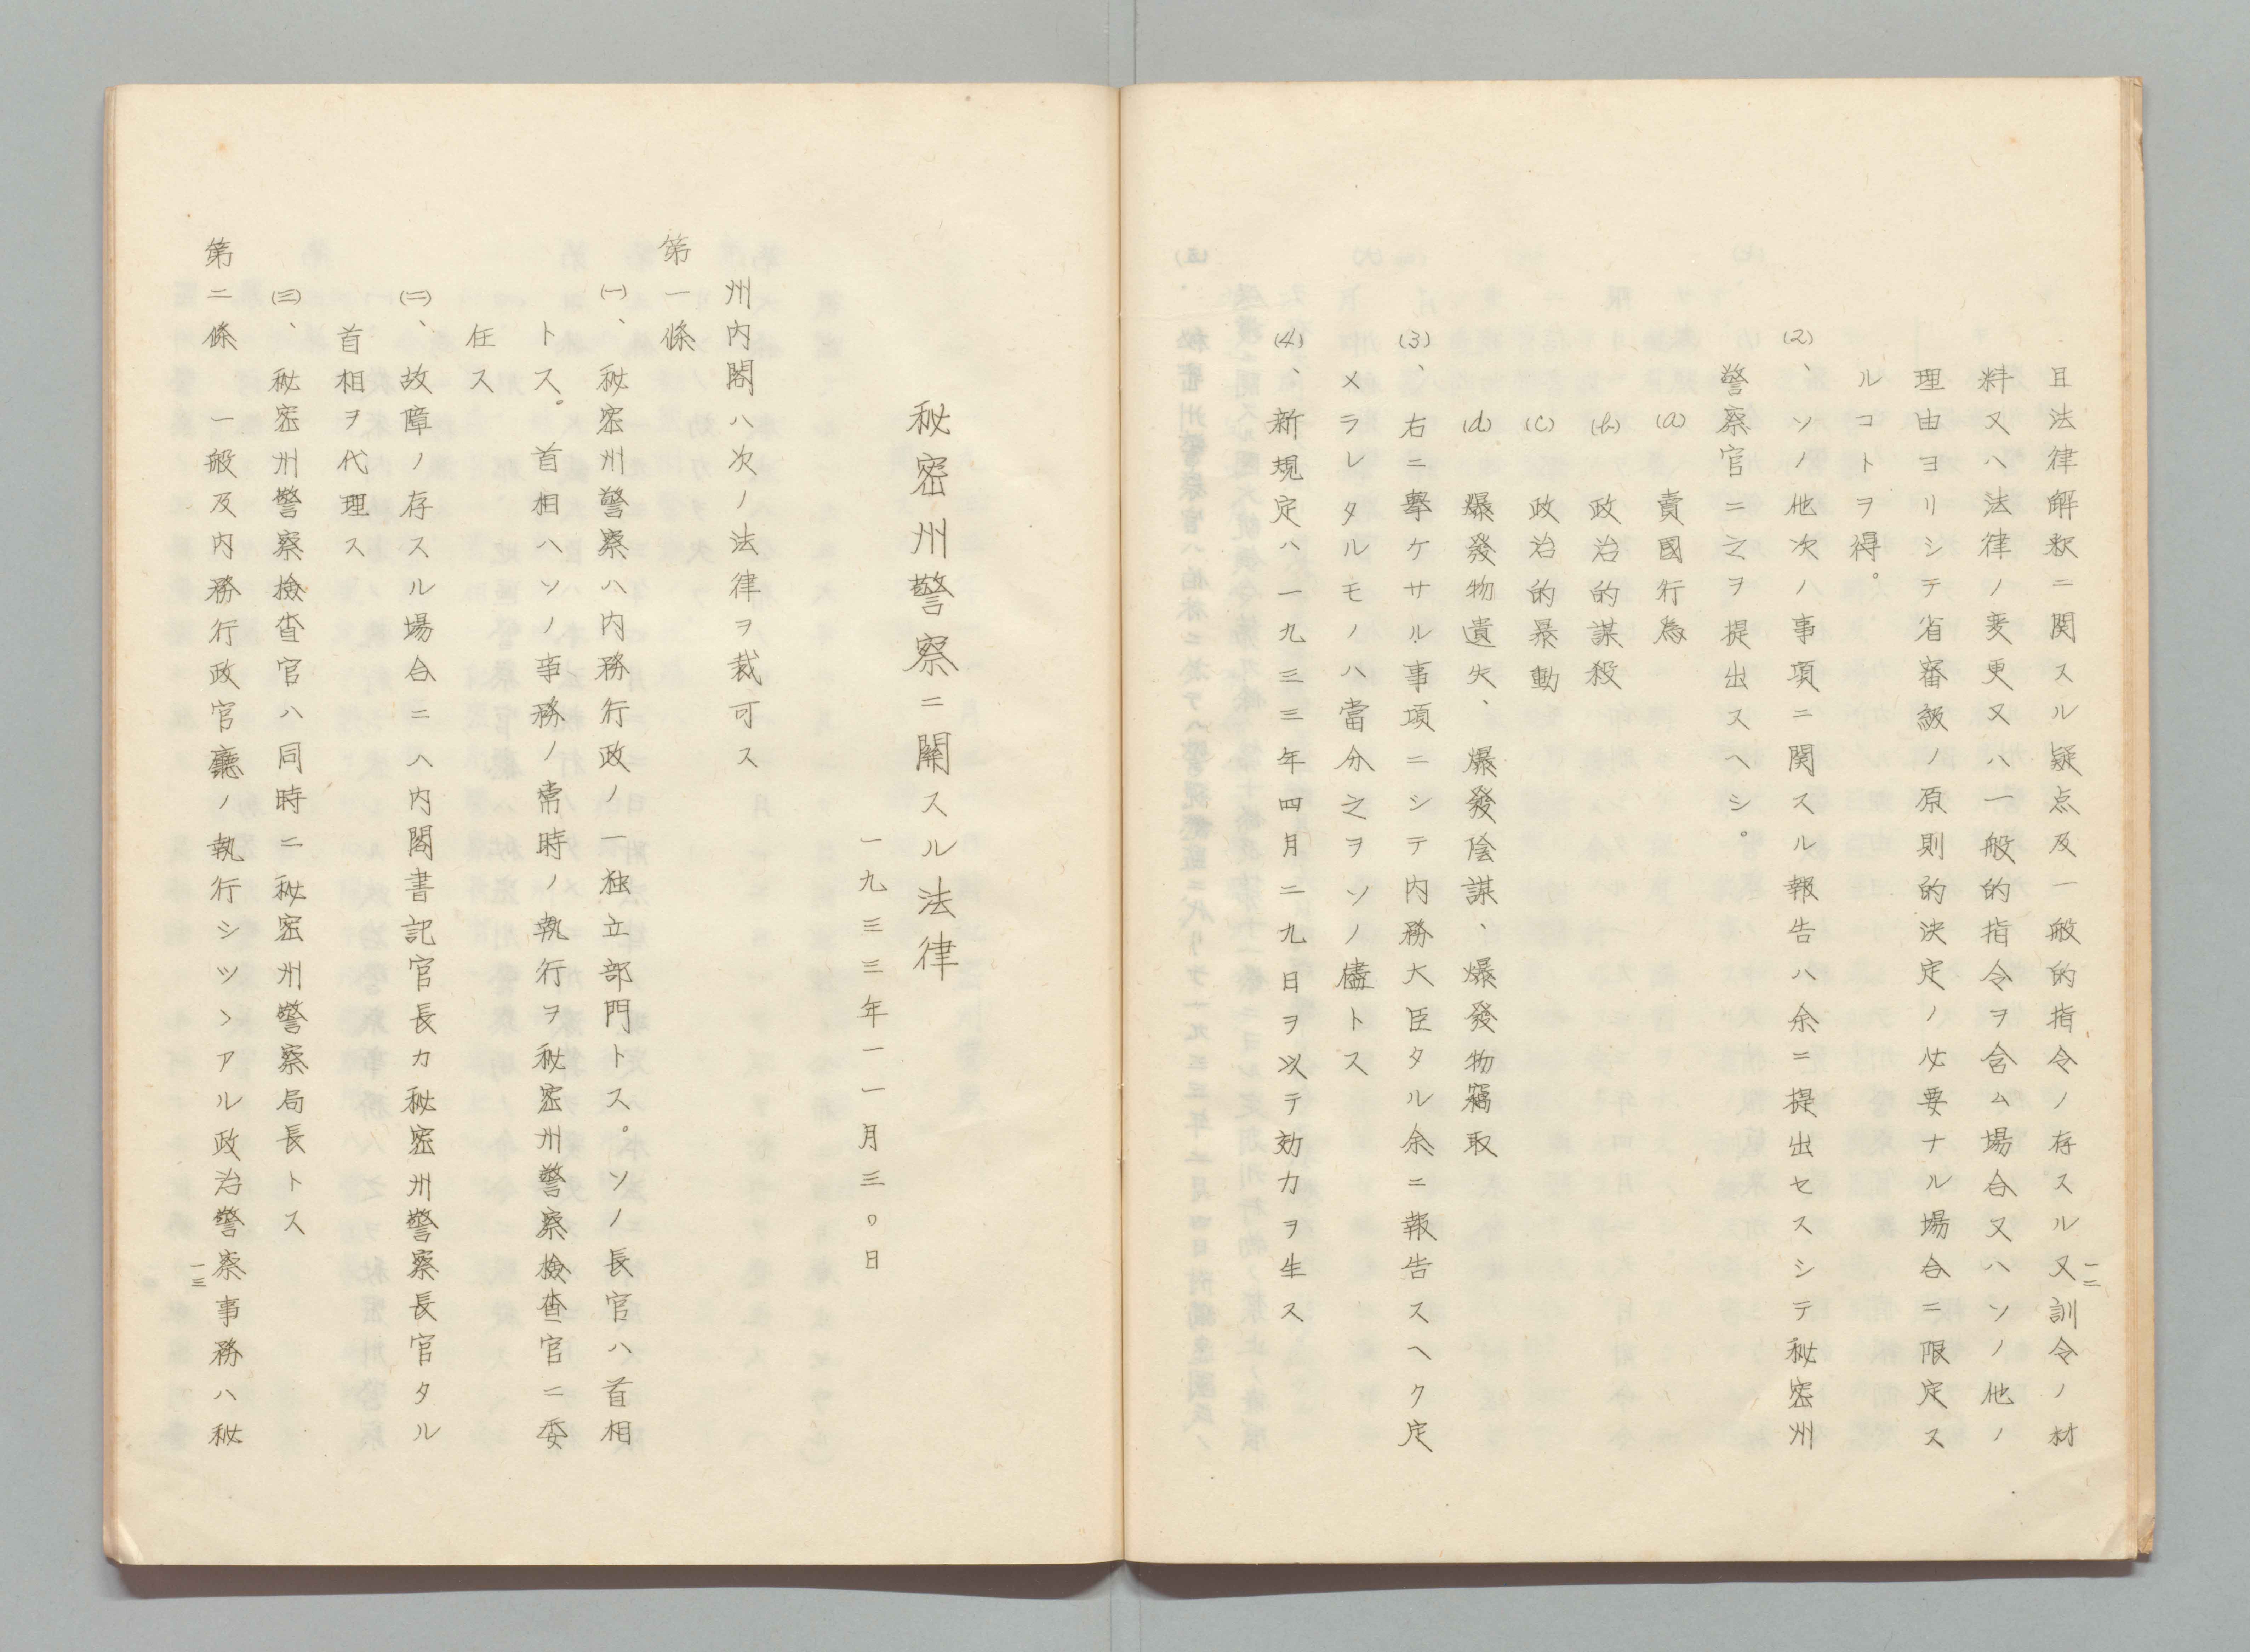 且法律解釈ニ関スル疑点及一般的指令ノ存スル又訓令ノ材
料又ハ法律ノ変更又ハ一般的指令ヲ含ム場合又ハソノ他ノ
理由ヨリシテ省審級ノ原則的決定ノ必要ナル場合ニ限定ス
ルコトヲ得。
(2)、ソノ他次ノ事項ニ関スル報告ハ余ニ提出セスシテ秘密州
警察官ニ之ヲ提出スヘシ。
(a) 賣國行為
(b) 政治的謀殺
(c) 政治的暴動
(d) 爆發物遺失、爆發陰謀、爆發物竊取
(3)、右ニ擧ケサル事項ニシテ内務大臣タル余ニ報告スヘク定
メラレタルモノハ當分之ヲソノ儘トス
(4)、新規定ハ一九三三年四月二九日ヲ以テ効力ヲ生ス
一二
秘密州警察ニ関スル法律
一九三三年一一月三〇日
州内閣ハ次ノ法律ヲ裁可ス
第一條
(一)、秘密州警察ハ内務行政ノ一独立部門トス。ソノ長官ハ首相
トス。首相ハソノ事務ノ常時ノ執行ヲ秘密州警察檢査官ニ委
任ス
(二)、故障ノ存スル場合ニハ内閣書記官長カ秘密州警察長官タル
首相ヲ代理ス
(三)、秘密州警察檢査官ハ同時ニ秘密州警察局長トス
第二條 一般及内務行政官廳ノ執行シツヽアル政治警察事務ハ秘
一三